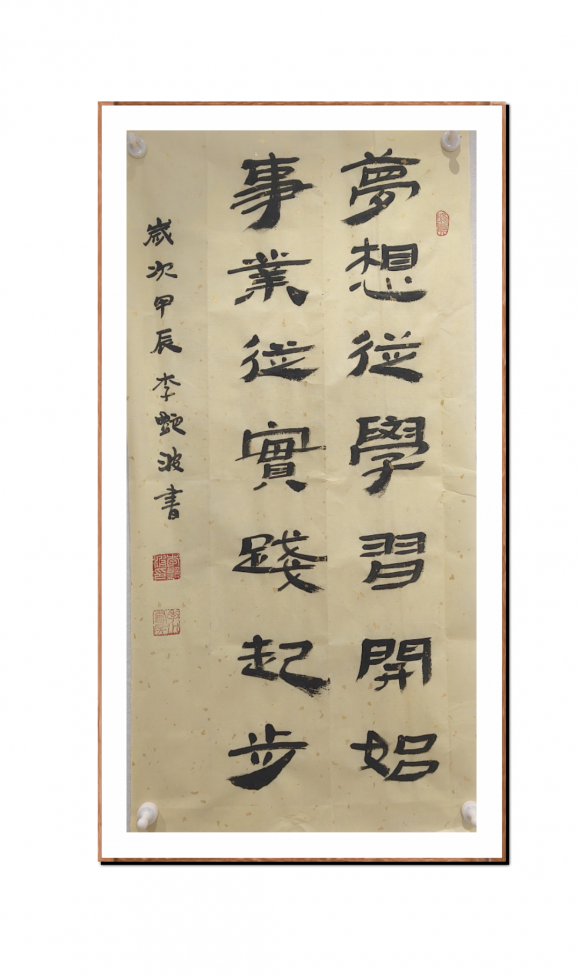 夢想從學習開始
事業從實踐起步
歲次甲辰李艷波書